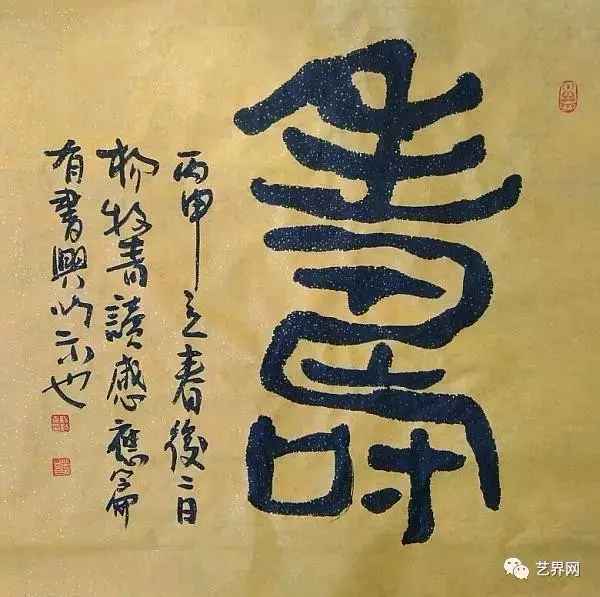 壽
丙申立春後二日
杨牧青讀感應篇
有書興以示也
艺界网